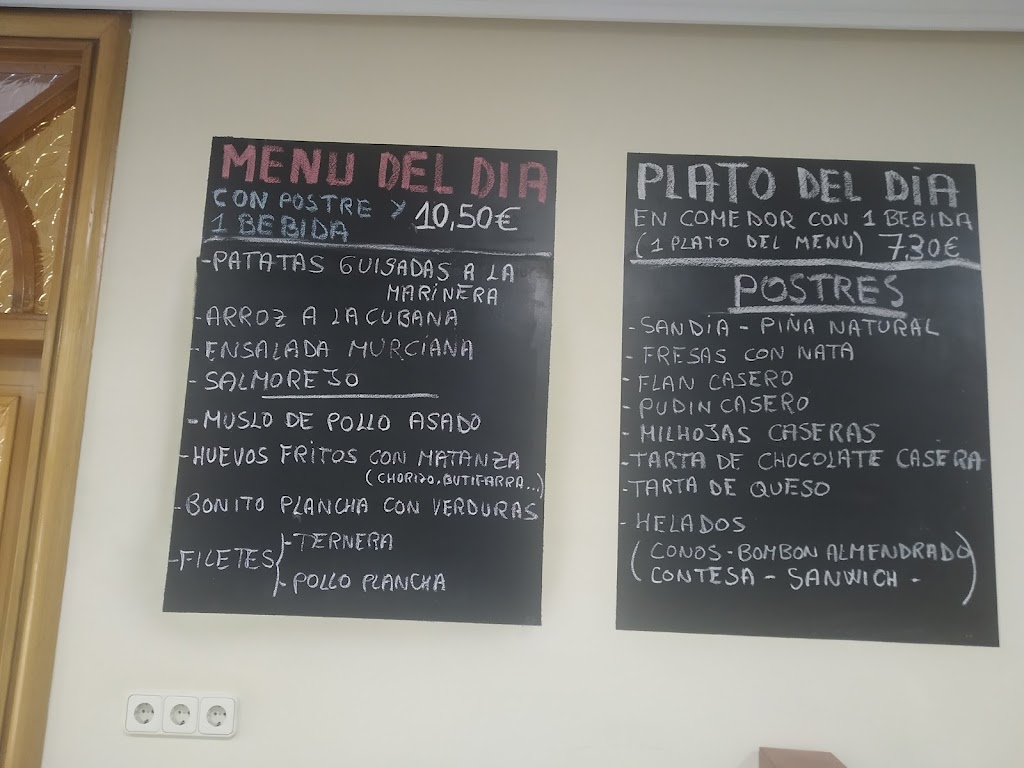 MENU DEL DIA
CON POSTRE Y
1 BEBIDA
10,50€
-PATATAS GUISADAS A LA
MARINERA
-ARROZ A LA CUBANA
-ENSALADA MURCIANA
-SALMOREJO
-MUSLO DE POLLO ASADO
-HUEVOS FRITOS CON MATANZA
(CHORIZO, BUTIFARRA...)
-BONITO PLANCHA CON VERDURAS
-FILETES
-TERNERA
-POLLO PLANCHA
PLATO DEL DIA
EN COMEDOR CON 1 BEBIDA
(1 PLATO DEL MENU) 7,30€
POSTRES
-SANDIA - PIÑA NATURAL
- FRESAS CON NATA
- FLAN CASERO
- PUDIN CASERO
- MILHOJAS CASERAS
-TARTA DE CHOCOLATE CASERA
-TARTA DE QUESO
- HELADOS
(CONOS - BOMBON ALMENDRADO
CONTESA - SANWICH -)